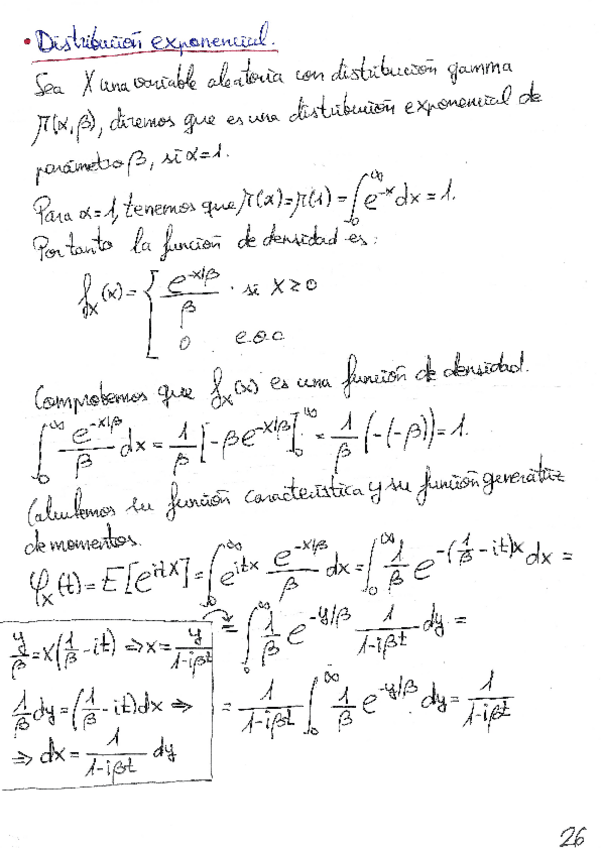 • Distribución exponencial.
Sea X una variable aleatoria con distribución gamma
Γ(α,β), diremos que es una distribución exponencial de
parámetro β, si α=1.
Para α=1, tenemos que Γ(α)=Γ(1)=∫₀^∞ e^{-x} dx = 1.
Por tanto la función de densidad es:
f_X(x) = { e^{-x/β}/β · si X ≥ 0
0 e.o.c
Comprobemos que f_X(x) es una función de densidad.
∫₀^∞ e^{-x/β}/β dx = 1/β [-βe^{-x/β}]₀^∞ = 1/β (-(-β)) = 1.
Calculemos su función característica y su función generatriz
de momentos.
φ_X(t) = E[e^{itX}] = ∫₀^∞ e^{itx} e^{-x/β}/β dx = ∫₀^∞ 1/β e^{-(1/β - it)x} dx =
= ∫₀^∞ 1/β e^{-y/β} 1/(1-iβt) dy =
= 1/(1-iβt) ∫₀^∞ 1/β e^{-y/β} dy = 1/(1-iβt)
y/β = x(1/β - it) ⇒ x = y/(1-iβt)
1/β dy = (1/β - it) dx ⇒
⇒ dx = 1/(1-iβt) dy
26